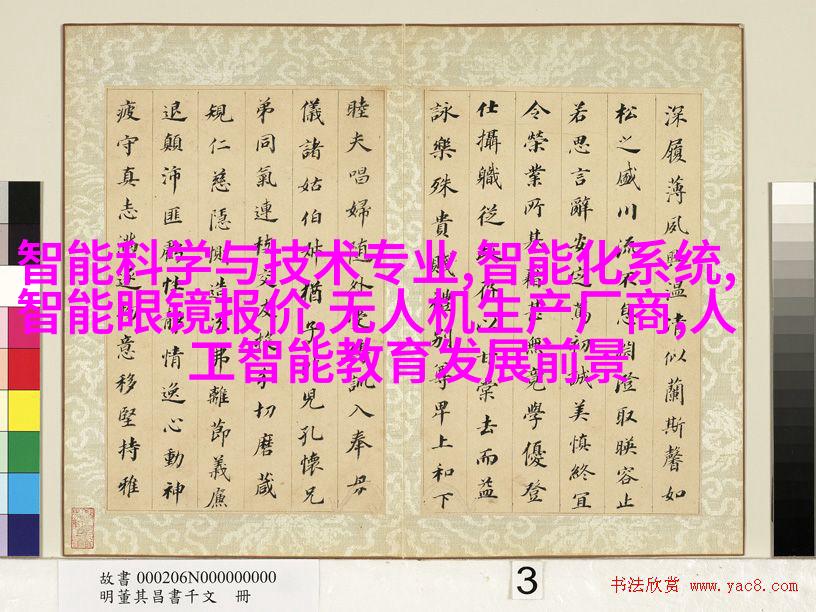 智能科学与技术专业,智能化系统,
智能眼镜报价,无人机生产厂商,人
工智能教育发展前景
深履薄夙溫清似蘭斯馨如
松之盛川流不息淵澄取暎容止
若思言辭安定篤初誠美慎終宜
令榮業所基藉甚無竟學優登
仕攝職從政存以甘棠去而益
詠樂殊貴賤禮別尊卑上和下
睦夫唱婦隨外受訓入奉母
儀諸姑伯叔猶子兒孔懷兄
弟同氣連枝交友投分切磨箴
規仁慈隱惻造次弗離節義廉
退顛沛匪虧性靜情逸心動神
疲守真志滿逐物意移堅持雅
故書 000206N000000000
明董其昌書千文 冊
3
书法欣赏 www.yac8.com